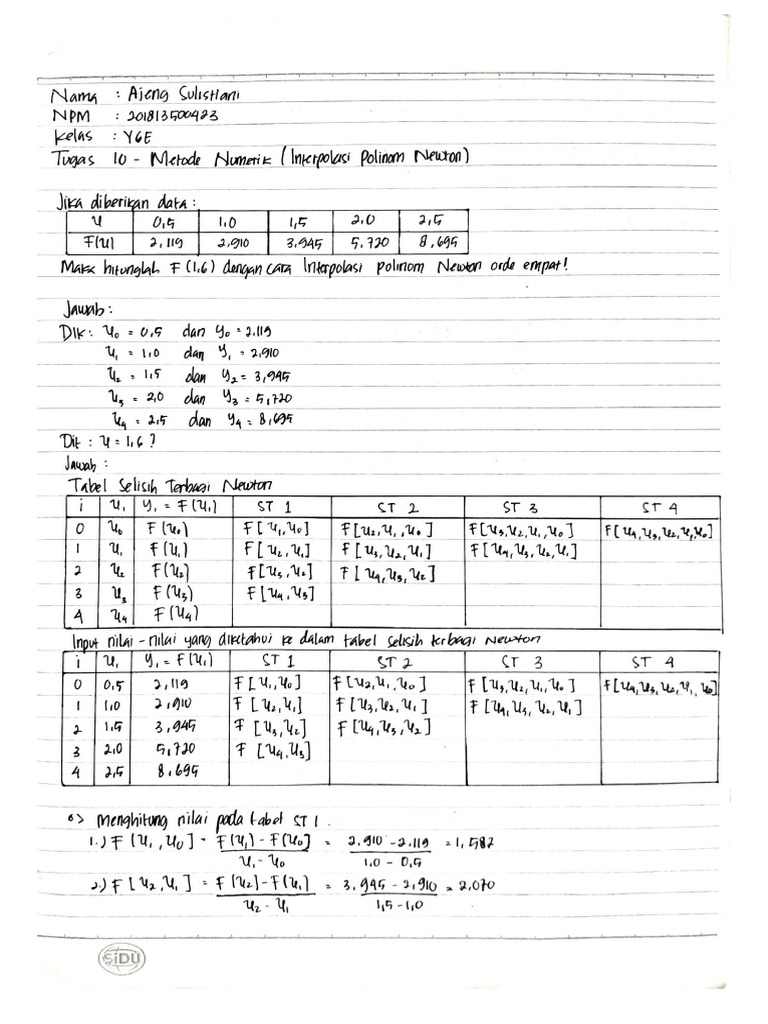 Nama : Ajeng Sulistiani
NPM : 201813500423
Kelas : Y6E
Tugas 10 - Metode Numerik (Interpolasi Polinom Newton)
Jika diberikan data :
u 0,5 1,0 1,5 2,0 2,5
F(u) 2,119 2,910 3,945 5,720 8,695
Maka hitunglah F(1,6) dengan cara Interpolasi polinom Newton orde empat!
Jawab :
Dik : u₀ = 0,5 dan y₀ = 2,119
u₁ = 1,0 dan y₁ = 2,910
u₂ = 1,5 dan y₂ = 3,945
u₃ = 2,0 dan y₃ = 5,720
u₄ = 2,5 dan y₄ = 8,695
Dit : u = 1,6 ?
Jawab :
Tabel Selisih Terbagi Newton
i uᵢ yᵢ = F(uᵢ) ST 1 ST 2 ST 3 ST 4
0 u₀ F(u₀) F[u₁,u₀] F[u₂,u₁,u₀] F[u₃,u₂,u₁,u₀] F[u₄,u₃,u₂,u₁,u₀]
1 u₁ F(u₁) F[u₂,u₁] F[u₃,u₂,u₁] F[u₄,u₃,u₂,u₁]
2 u₂ F(u₂) F[u₃,u₂] F[u₄,u₃,u₂]
3 u₃ F(u₃) F[u₄,u₃]
4 u₄ F(u₄)
Input nilai - nilai yang diketahui ke dalam tabel selisih terbagi Newton
i uᵢ yᵢ = F(uᵢ) ST 1 ST 2 ST 3 ST 4
0 0,5 2,119 F[u₁,u₀] F[u₂,u₁,u₀] F[u₃,u₂,u₁,u₀] F[u₄,u₃,u₂,u₁,u₀]
1 1,0 2,910 F[u₂,u₁] F[u₃,u₂,u₁] F[u₄,u₃,u₂,u₁]
2 1,5 3,945 F[u₃,u₂] F[u₄,u₃,u₂]
3 2,0 5,720 F[u₄,u₃]
4 2,5 8,695
°> Menghitung nilai pada tabel ST 1.
1.) F[u₁,u₀] = F(u₁) - F(u₀) / u₁ - u₀ = 2,910 - 2,119 / 1,0 - 0,5 = 1,582
2.) F[u₂,u₁] = F(u₂) - F(u₁) / u₂ - u₁ = 3,945 - 2,910 / 1,5 - 1,0 = 2,070
SiDU